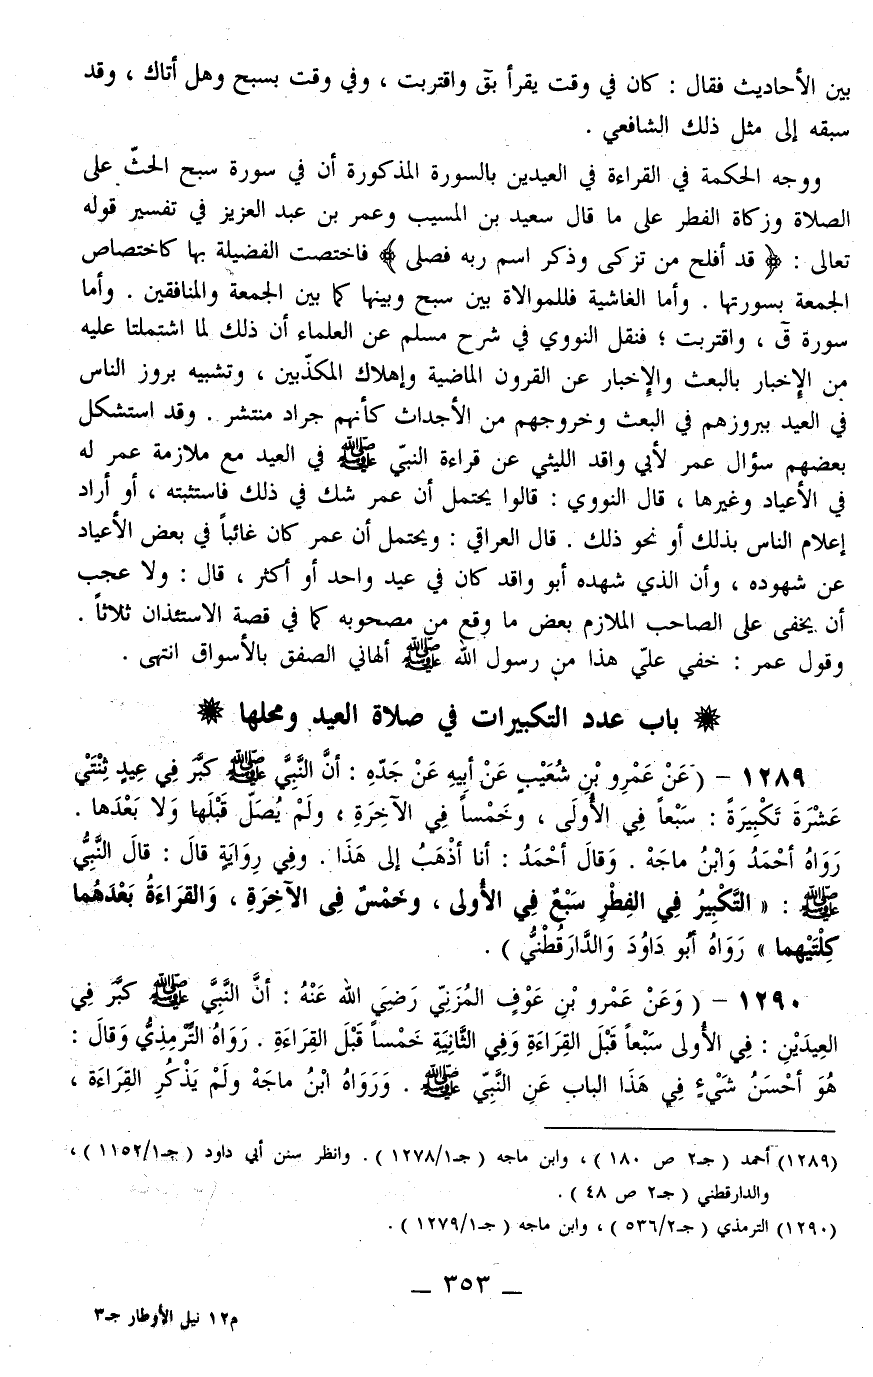 بين الأحاديث فقال : كان في وقت يقرأ بقٓ واقتربت ، وفي وقت بسبح وهل أتاك ، وقد
سبقه إلى مثل ذلك الشافعي .
ووجه الحكمة في القراءة في العيدين بالسورة المذكورة أن في سورة سبح الحثّ على
الصلاة وزكاة الفطر على ما قال سعيد بن المسيب وعمر بن عبد العزيز في تفسير قوله
تعالى : ﴿ قد أفلح من تزكى وذكر اسم ربه فصلى ﴾ فاختصت الفضيلة بها كاختصاص
الجمعة بسورتها . وأما الغاشية فللموالاة بين سبح وبينها كما بين الجمعة والمنافقين . وأما
سورة قٓ ، واقتربت ؛ فنقل النووي في شرح مسلم عن العلماء أن ذلك لما اشتملتا عليه
من الإخبار بالبعث والإخبار عن القرون الماضية وإهلاك المكذّبين ، وتشبيه بروز الناس
في العيد ببروزهم في البعث وخروجهم من الأجداث كأنهم جراد منتشر . وقد استشكل
بعضهم سؤال عمر لأبي واقد الليثي عن قراءة النبيّ ﷺ في العيد مع ملازمة عمر له
في الأعياد وغيرها ، قال النووي : قالوا يحتمل أن عمر شك في ذلك فاستثبته ، أو أراد
إعلام الناس بذلك أو نحو ذلك . قال العراقي : ويحتمل أن عمر كان غائباً في بعض الأعياد
عن شهوده ، وأن الذي شهده أبو واقد كان في عيد واحد أو أكثر ، قال : ولا عجب
أن يخفى على الصاحب الملازم بعض ما وقع من مصحوبه كما في قصة الاستئذان ثلاثاً .
وقول عمر : خفي عليّ هذا من رسول الله ﷺ ألهاني الصفق بالأسواق انتهى .
باب عدد التكبيرات في صلاة العيد ومحلها
١٢٨٩ – ( عَنْ عَمْرِو بْنِ شُعَيْبٍ عَنْ أَبِيهِ عَنْ جَدّهِ : أنَّ النَّبِيَّ ﷺ كَبَّرَ فِي عِيدٍ ثِنْتَيْ
عَشْرَةَ تَكْبِيرَةً : سَبْعاً فِي الأُولَى ، وخَمْساً فِي الآخِرَةِ ، ولَمْ يُصَلّ قَبْلَها وَلا بَعْدَها .
رَوَاهُ أحْمَدُ وَابْنُ ماجَهْ . وَقالَ أحْمَدُ : أنا أذْهَبُ إلى هَذَا . وفِي رِوَايَةٍ قالَ : قالَ النَّبِيُّ
ﷺ : « التَّكْبِيرُ فِي الفِطْرِ سَبْعٌ فِي الأُولى ، وخَمْسٌ فِي الآخِرَةِ ، وَالقرَاءَةُ بَعْدَهُما
كِلْتَيْهِما » رَوَاهُ أَبُو دَاوُدَ وَالدَّارَقُطْنِيُّ ) .
١٢٩٠ – ( وَعَنْ عَمْرِو بْنِ عَوْفٍ المُزَنِيّ رَضِيَ الله عَنْهُ : أنَّ النَّبِيَّ ﷺ كَبَّرَ فِي
العِيدَيْنِ : فِي الأُولى سَبْعاً قَبْلَ القِرَاءَةِ وَفِي الثَّانِيَةِ خَمْساً قَبْلَ القِرَاءَةِ . رَوَاهُ التِّرْمِذِيُّ وَقالَ :
هُوَ أحْسَنُ شَيْءٍ فِي هَذَا الباب عَنِ النَّبِيّ ﷺ . وَرَوَاهُ ابْنُ ماجَهْ ولَمْ يَذْكُرِ القِرَاءَة ،
(١٢٨٩) أحمد ( جـ٢ ص ١٨٠ ) ، وابن ماجه ( جـ١/١٢٧٨ ) . وانظر سنن أبي داود ( جـ١/١١٥٢ ) ،
والدارقطني ( جـ٢ ص ٤٨ ) .
(١٢٩٠) الترمذي ( جـ٢/٥٣٦ ) ، وابن ماجه ( جـ١/١٢٧٩ ) .
– ٣٥٣ –
م١٢ نيل الأوطار جـ٣